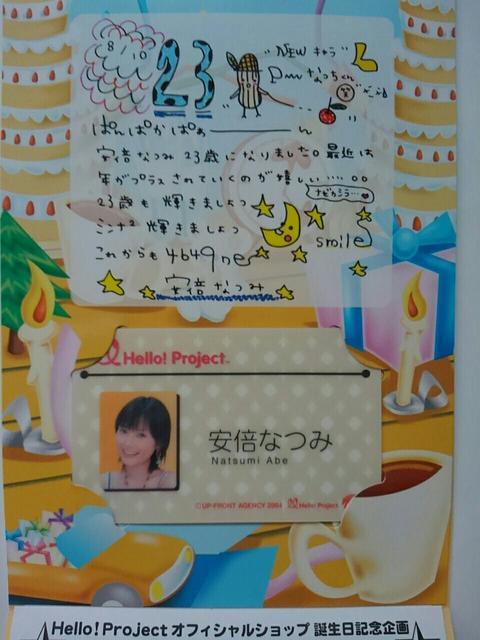 8/10
23
"NEW キャラ"
ぱんぱかぱぁーーーん
安倍なつみ 23歳になりました。最近は
年がプラスされていくのが嬉しい……
(ナゼカシラ…♥)
23歳も 輝きましょっ
ミンナ² 輝きましょっ
smile
これからも 4649ne
安倍なつみ
Hello! Project™
安倍なつみ
Natsumi Abe
©UP-FRONT AGENCY 2004 Hello! Project
Hello! Project オフィシャルショップ 誕生日記念企画